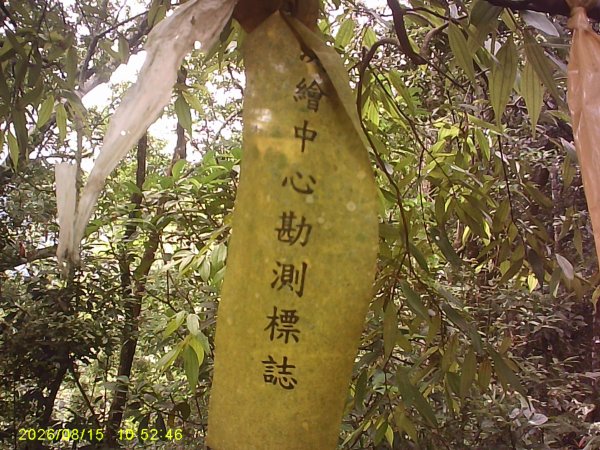 繪中心勘測標誌
2026/08/15 10:52:46